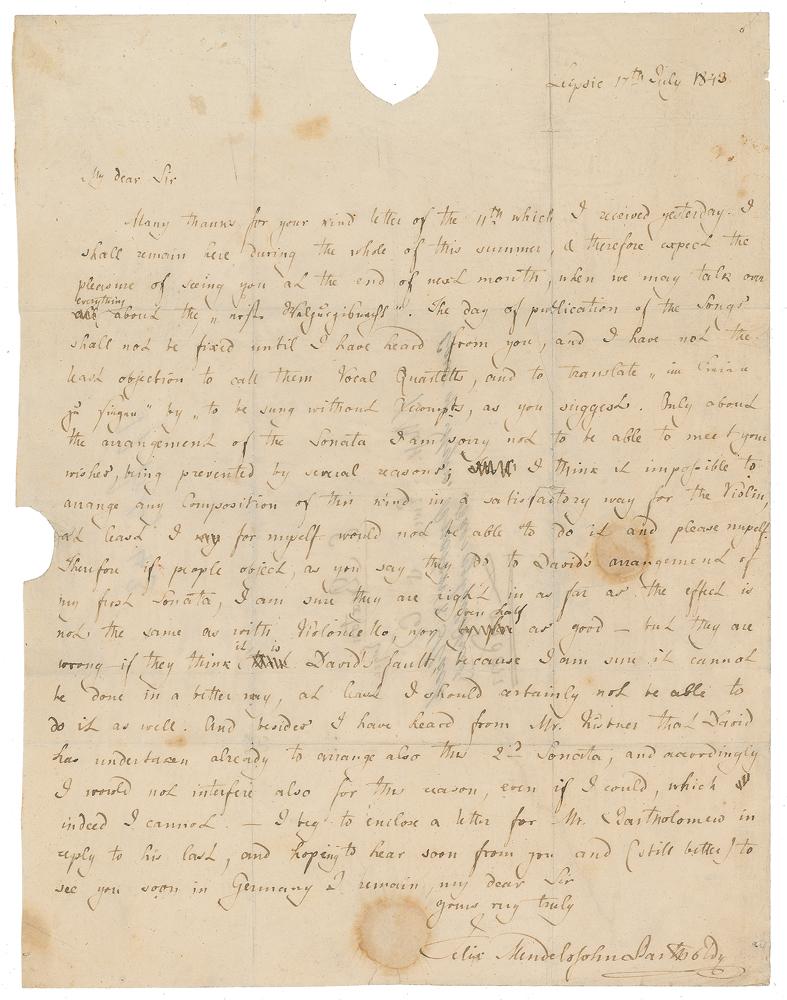 Leipsic 17th July 1843
My dear Sir
Many thanks for your kind letter of the 11th which I received yesterday. I
shall remain here during the whole of this summer, & therefore expect the
pleasure of seeing you at the end of next month, when we may talk over
everything
about the „erste Walpurgisnacht". The day of publication of the Songs
shall not be fixed until I have heard from you, and I have not the
least objection to call them Vocal Quartetts, and to translate „im Freien
zu singen" by „to be sung without Accompts, as you suggest. Only about
the arrangement of the Sonata I am sorry not to be able to meet your
wishes, being prevented by several reasons; I think it impossible to
arrange any Composition of this kind in a satisfactory way for the Violin,
at least I for myself would not be able to do it and please myself.
Therefore if people object, as you say they do to David's arrangement of
my first Sonata, I am sure they are right in as far as the effect is
even half
not the same as with Violoncello, nor as good – but they are
it is
wrong if they think David's fault, because I am sure it cannot
be done in a better way, at least I should certainly not be able to
do it as well. And besides I have heard from Mr. Kistner that David
has undertaken already to arrange also this 2d Sonata, and accordingly
I would not interfere also for this reason, even if I could, which
indeed I cannot. – I beg to enclose a letter for Mr. Bartholomew in
reply to his last, and hoping to hear soon from you and (still better) to
see you soon in Germany I remain, my dear Sir
yours very truly
Felix Mendelssohn Bartholdy